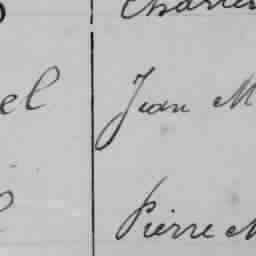 Charles
el Jean M
Pierre M